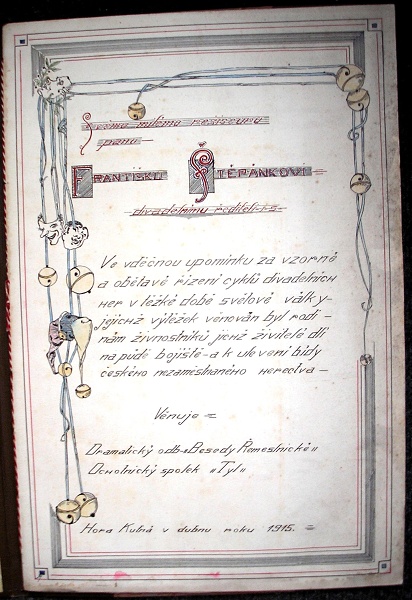 Svému milému režiséru
panu
Františku Štěpánkovi
divadelnímu řediteli t.s.
Ve vděčnou upomínku za vzorné
a obětavé řízení cyklů divadelních
her v těžké době světové války-
jejichž výtěžek věnován byl rodi-
nám živnostníků jichž živitelé dlí
na půdě bojiště-a k ulevení bídy
českého nezaměstnaného herectva-
Věnuje =
Dramatický odb. „Besedy Řemeslnické"
Ochotnický spolek „Tyl"
Hora Kutná v dubnu roku 1915. =